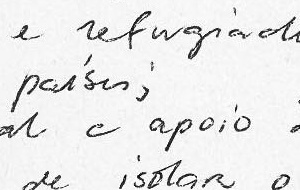 e refugiad
países;
al e apoio
de isolar o